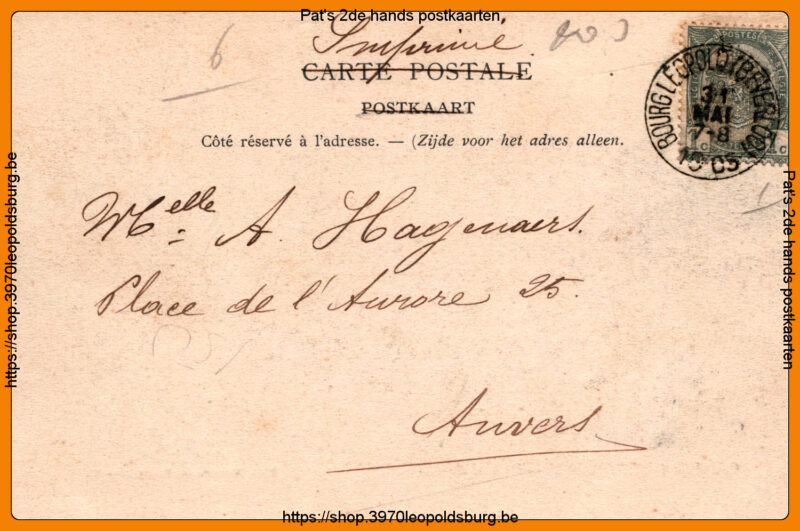 Pat's 2de hands postkaarten
Imprimé
6
CARTE POSTALE
POSTKAART
Côté réservé à l'adresse. — (Zijde voor het adres alleen.
POSTES
BOURG LÉOPOLD (BEVERLOO)
31
MAI
7-8
1903
Melle A. Hagenaers.
Place de l'Aurore 25.
Anvers
https://shop.3970leopoldsburg.be
Pat's 2de hands postkaarten
https://shop.3970leopoldsburg.be